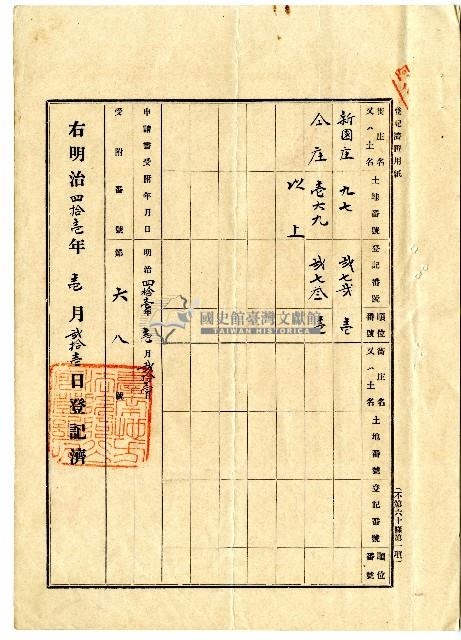 登記濟證用紙
街庄名又ハ土名 土地番號 登記番號 順位番號 街庄名又ハ土名 土地番號 登記番號 順位番號
新園庄 九七 貳七貳 壹
仝庄 壹六九 貳七叁 壹
以上
申請書受附年月日 明治四拾壹年壹月貳拾壹日
受附番號 第六八號
右明治四拾壹年壹月貳拾壹日登記濟
國史館臺灣文獻館
TAIWAN HISTORICA